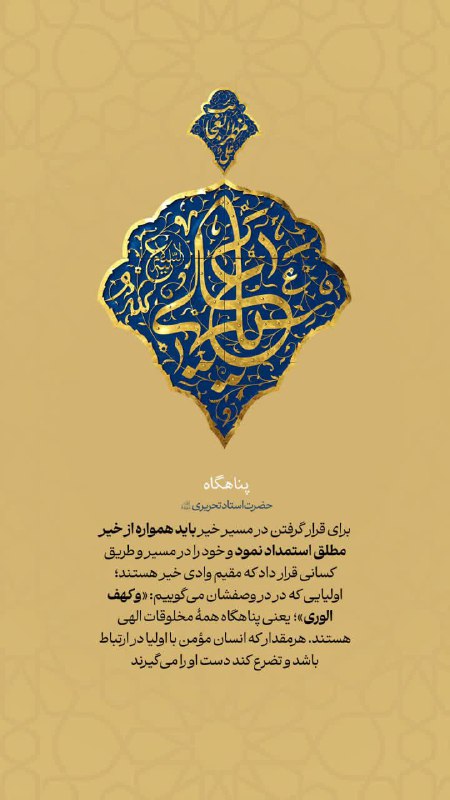 مظهر العجائب
علی
پناهگاه
حضرت استاد تحریری
برای قرار گرفتن در مسیر خیر باید همواره از خیر
مطلق استمداد نمود و خود را در مسیر و طریق
کسانی قرار داد که مقیم وادی خیر هستند؛
اولیایی که در در وصفشان می‌گوییم: «وکهف
الوری»؛ یعنی پناهگاه همهٔ مخلوقات الهی
هستند. هرمقدار که انسان مؤمن با اولیا در ارتباط
باشد و تضرع کند دست او را می‌گیرند